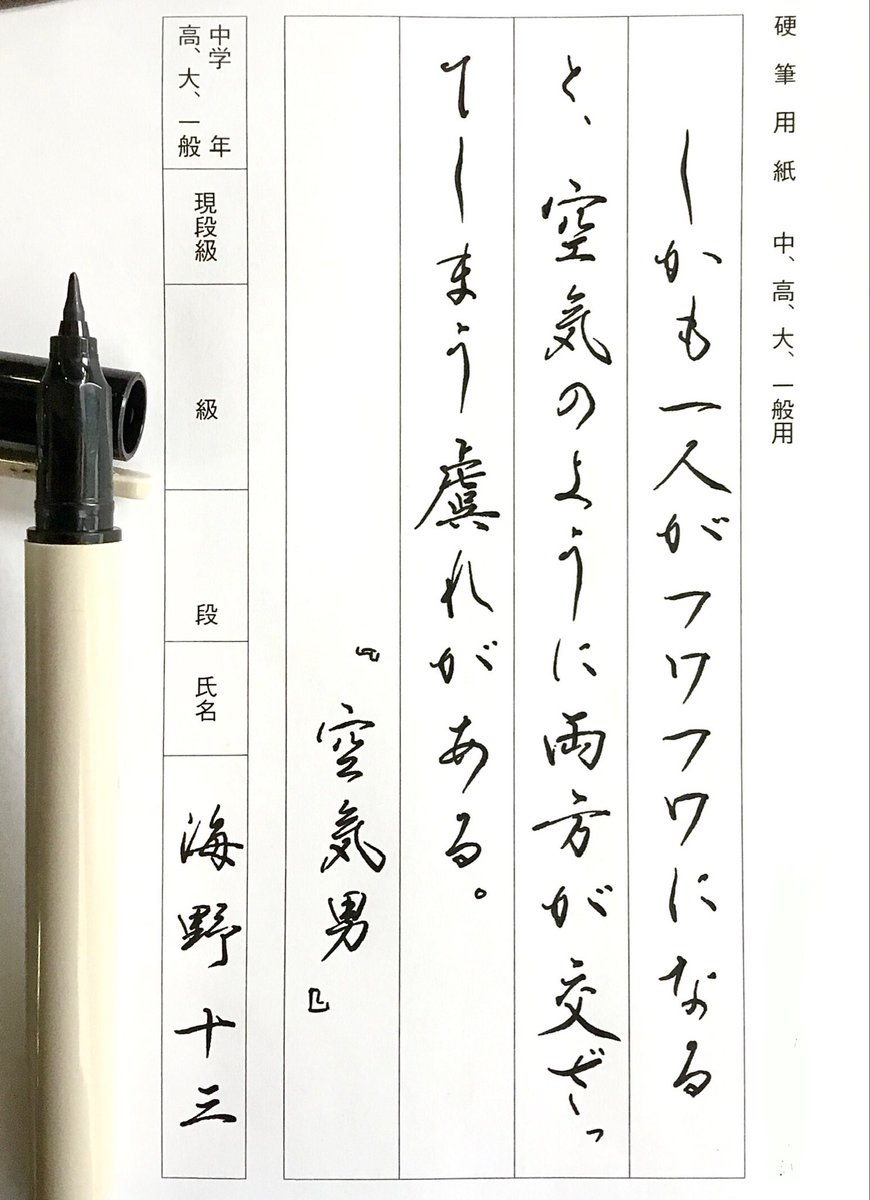 硬筆用紙 中、高、大、一般用
しかも一人がフワフワになる
と、空気のように両方が交ざっ
てしまう虞れがある。
『空気男』
中学 年
高、大、一般
現段級
級
段
氏名
海野十三